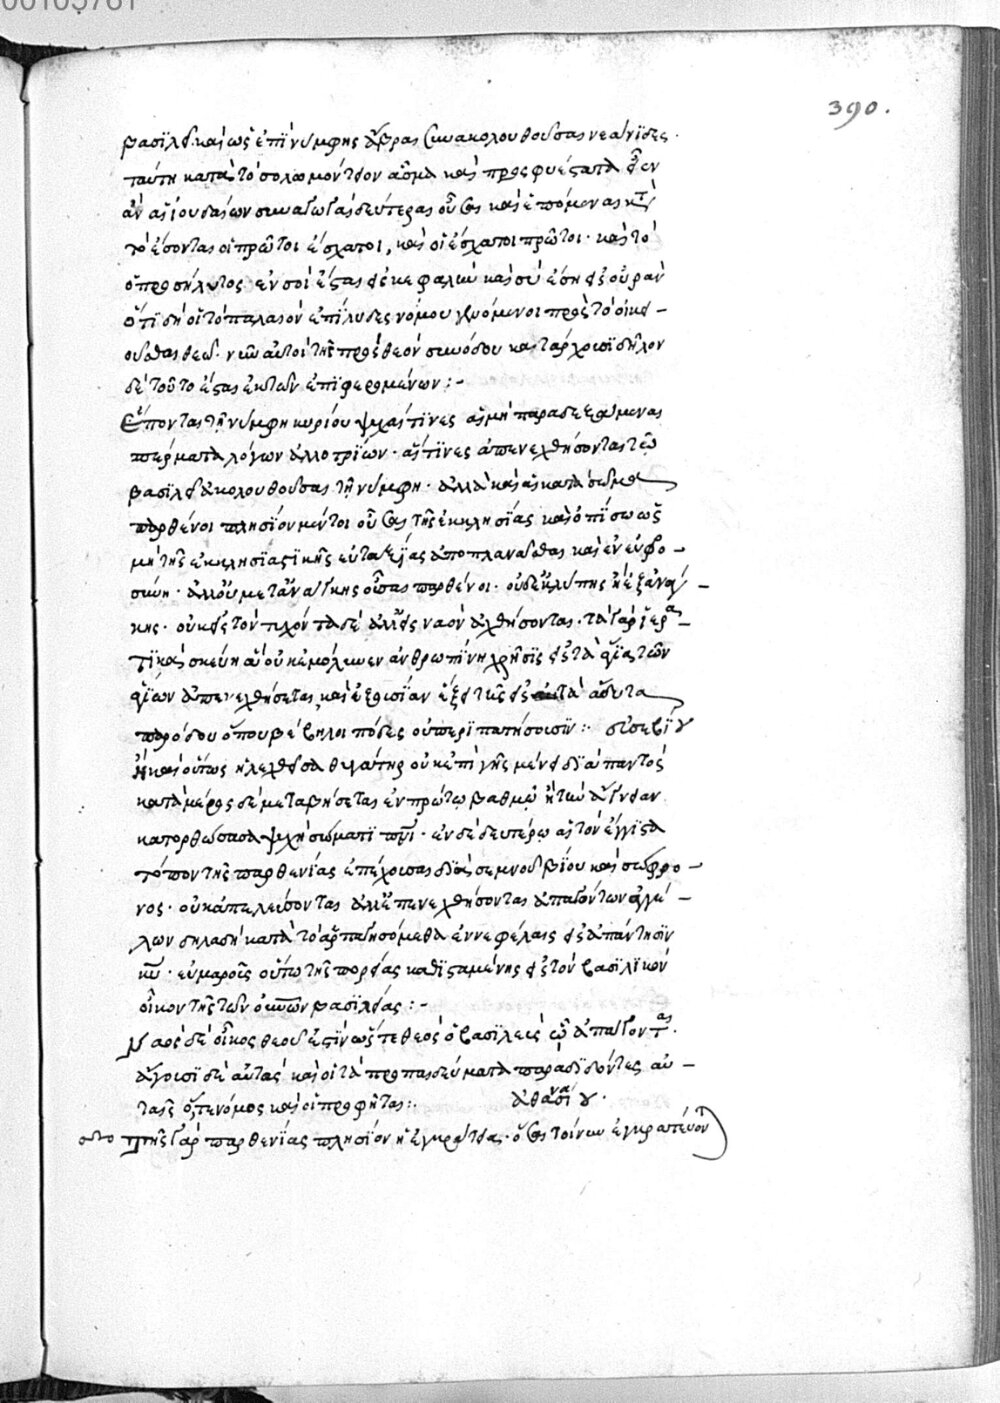 00105781
390.
βασιλεῖ. καὶ ὡς ἐπὶ νύμφης ἅβρας συνακολουθούσας νεανίδες.
ταύτη κατὰ τὸ σολομόντιον ἆσμα καὶ
αἱ ἰουδαίων συναγωγαὶ δεύτεραι οὖσαι καὶ ἑπόμεναι κατὰ
τὸ ἔσονται οἱ πρῶτοι ἔσχατοι, καὶ οἱ ἔσχατοι πρῶτοι. καὶ τὸ
ὁ προσήλυτος ἐν σοὶ ἔσται εἰς κεφαλὴν καὶ σὺ ἔση εἰς οὐρὰν
ὅτι δὴ οἱ τὸ παλαιὸν ἐπήλυδες νόμου γενόμενοι πρὸς τὸ οἰκει-
οῦσθαι θεῶ. νῦν αὐτοὶ τῆς πρὸς θεὸν συνόδου κατάρχουσι δῆλον
δὲ τοῦτο ἔσται ἐκ τῶν ἐπιφερομένων :-
Ἕπονται τῆ νύμφη κυρίου ψυχαί τινες αἱ μὴ παραδεξάμεναι
σπέρματα λόγων ἀλλοτρίων. αἵτινες ἀπενεχθήσονται τῶ
βασιλεῖ ἀκολουθοῦσαι τῆ νύμφη. ἀλλὰ καὶ αἱ κατὰ σῶμα
παρθένοι πλησίον μέντοι οὖσαι τῆς ἐκκλησίας καὶ ὀπίσω ὡς
μὴ τῆς ἐκκλησιαστικῆς εὐταξίας ἀποπλανᾶσθαι καὶ ἐν εὐφρο-
σύνη. ἀλλ' οὐ μετ' ἀνάγκης οὖσαι παρθένοι. οὐδὲ ἐκ λύπης ἢ ἐξ ἀνάγ-
κης. οὐκ εἰς τὸν τυχόντα δὲ ἀλλ' εἰς ναὸν ἀχθήσονται. τὰ γὰρ ἱερα-
τικὰ σκεύη ἃ οὐκ ἐμόλυνεν ἀνθρωπίνη χρῆσις εἰς τὰ ἅγια τῶν
ἁγίων ἀπενεχθήσεται, καὶ ἐξουσίαν ἕξει τῆς εἰς τὰ ἄδυτα
παρόδου ὅπου βέβηλοι πόδες οὐ περιπατήσουσιν :· εὐσεβίου
Ἡ καὶ οὕτως ἠλεχθεῖσα θυγάτηρ οὐκ ἐπὶ γῆς μένει διαπαντός
κατὰ μέρος δὲ μεταβήσεται ἐν πρώτω βαθμῶ ἡ τὴν ἁγνείαν
κατορθώσασα ψυχὴ σώματι πνι. ἐν δὲ δευτέρω αἱ τὸν ἔγγιστα
τόπον τῆς παρθενίας ἐπέχουσαι διὰ σεμνοῦ βίου καὶ σώφρο-
νος. οὐκ ἀπελεύσονται ἀλλ' ἀπενεχθήσονται ἀπαγόντων ἀγγέ-
λων δηλαδὴ κατὰ τὸ ἁρπαγησόμεθα ἐν νεφέλαις εἰς ἀπάντησιν
κυ. εὐμαροῦς οὕτω τῆς πορείας καθισταμένης εἰς τὸν βασιλικὸν
οἶκον τῆς τῶν οὐνῶν βασιλείας :-
Ναὸς δὲ οἶκος θεοῦ ἐστὶν ὥστε θεὸς ὁ βασιλεὺς ὧ ἀπάγονται.
ἄγουσι δὲ αὐτὰς καὶ οἱ τὰ προπαιδεύματα παραδιδόντες αὐ-
ταῖς ὅ,τε νόμος καὶ οἱ προφῆται :· ἀθανασίου.
τῆς γὰρ παρθενίας πλησίον ἡ ἐγκράτεια. ὅσαι τοίνυν ἐγκρατεύον